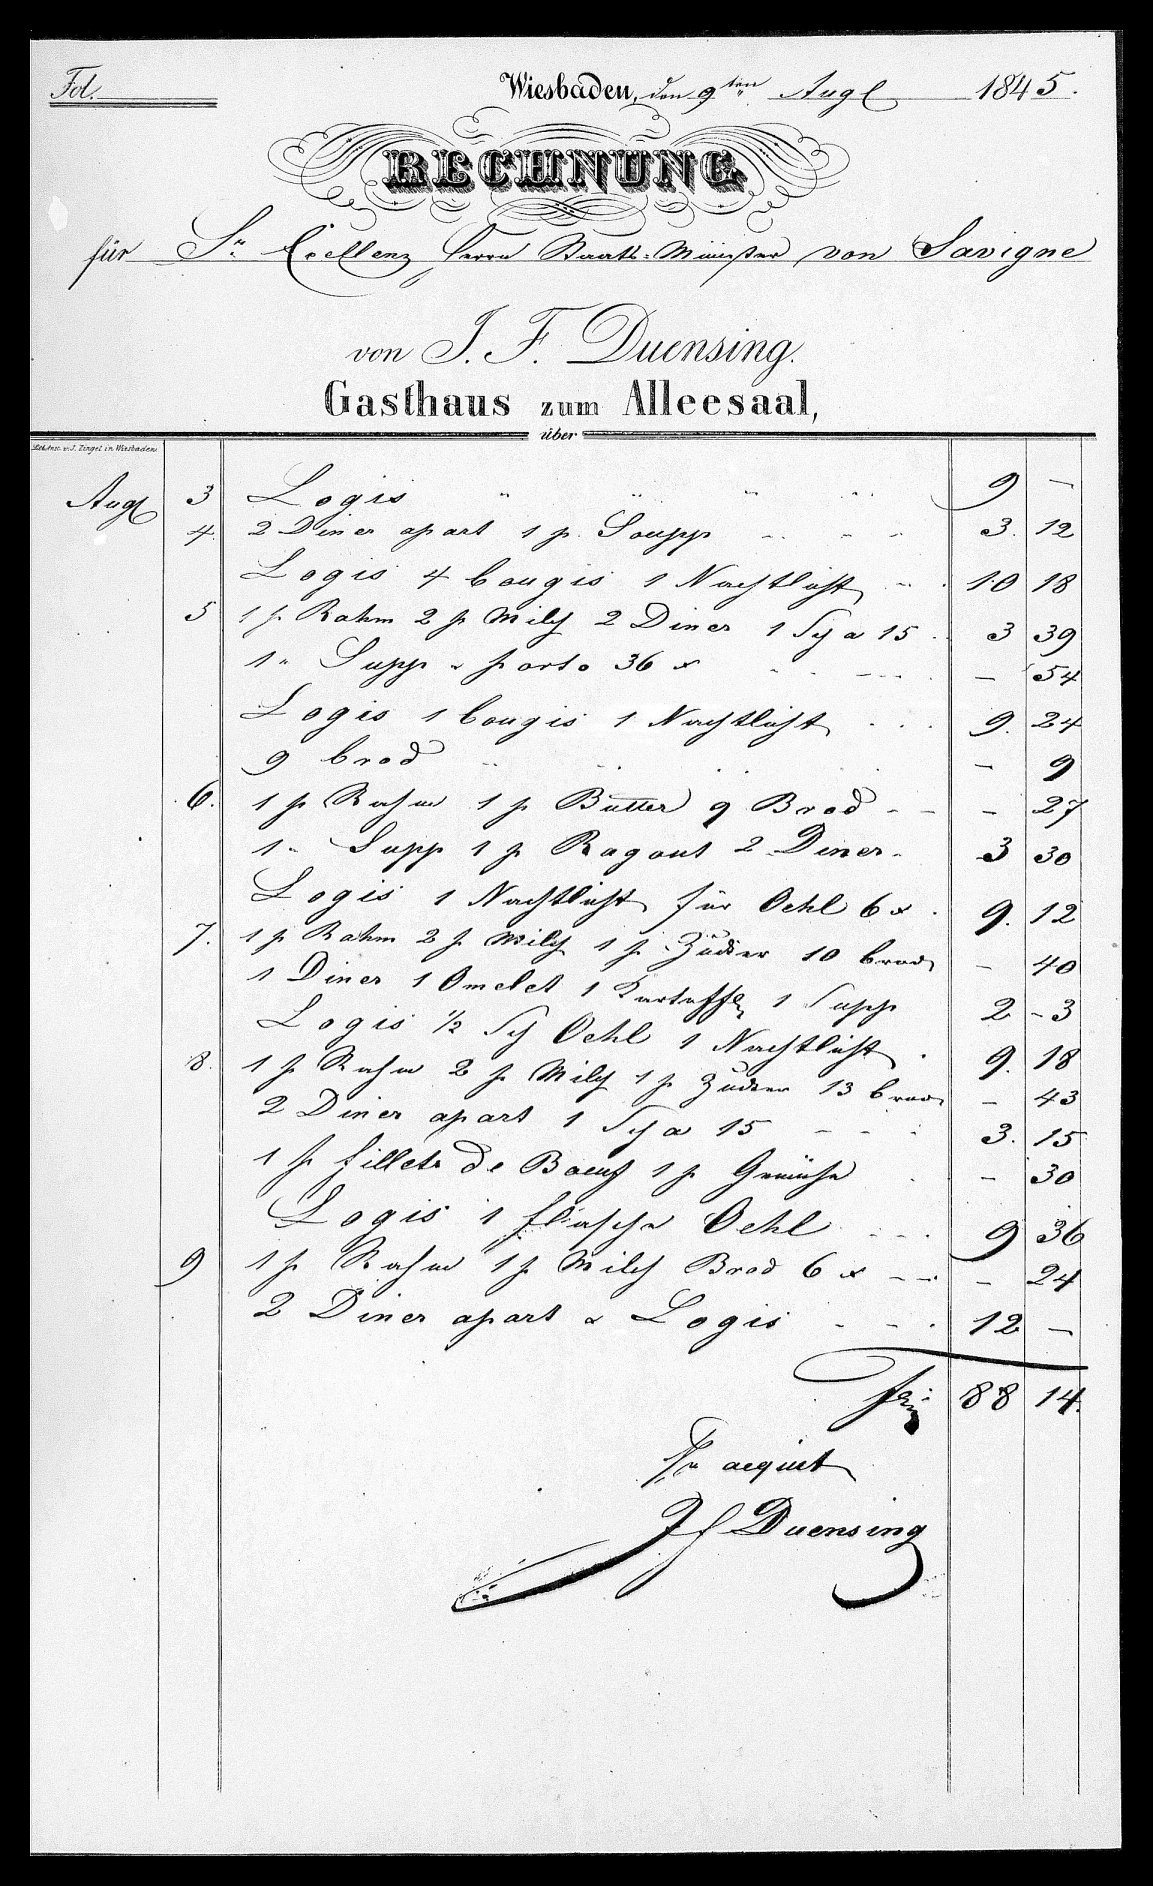 Fol.
Wiesbaden, den 9ten Augt 1845.
RECHNUNG
für Sr Excellenz Herrn Staats-Minister von Savigne
von J. F. Duensing.
Gasthaus zum Alleesaal,
über
Lith. Anst. v. J. Zingel in Wiesbaden
Augt 3 Logis " " " " 9 —
4. 2 Diner apart 1 p. Soupp 3. 12
Logis 4 bougis 1 Nachtlicht 10 18
5 1 p. Rahm 2 p Milch 2 Diner 1 Sch a 15 3 39
1 " Supp u porto 36 x — 54
Logis 1 bougis 1 Nachtlicht 9. 24
9 brod " — 9
6. 1 p Rahm 1 p Butter 9 Brod — 27
1 " Supp 1 p Ragout 2 Diner 3 30
Logis 1 Nachtlicht für Oehl 6 x 9. 12
7. 1 p Rahm 2 p Milch 1 p Zucker 10 brod — 40
1 Diner 1 Omelet 1 Kartoffel 1 Supp 2 – 3
Logis ½ Sch Oehl 1 Nachtlicht 9. 18
8. 1 p Rahm 2 p Milch 1 p Zucker 13 brod — 43
2 Diner apart 1 Sch a 15 3. 15
1 p fillets de Boeuf 1 p Gemüse — 30
Logis 1 flasche Oehl 9 36
9 1 p Rahm 1 p Milch Brod 6 x — 24
2 Diner apart u Logis 12 —
88 14.
Pr acquit
JF Duensing